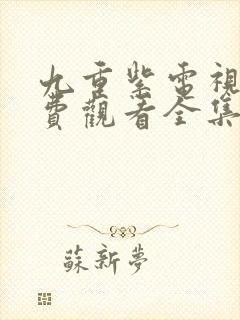 九重紫電視
費觀看全集
蘇新夢